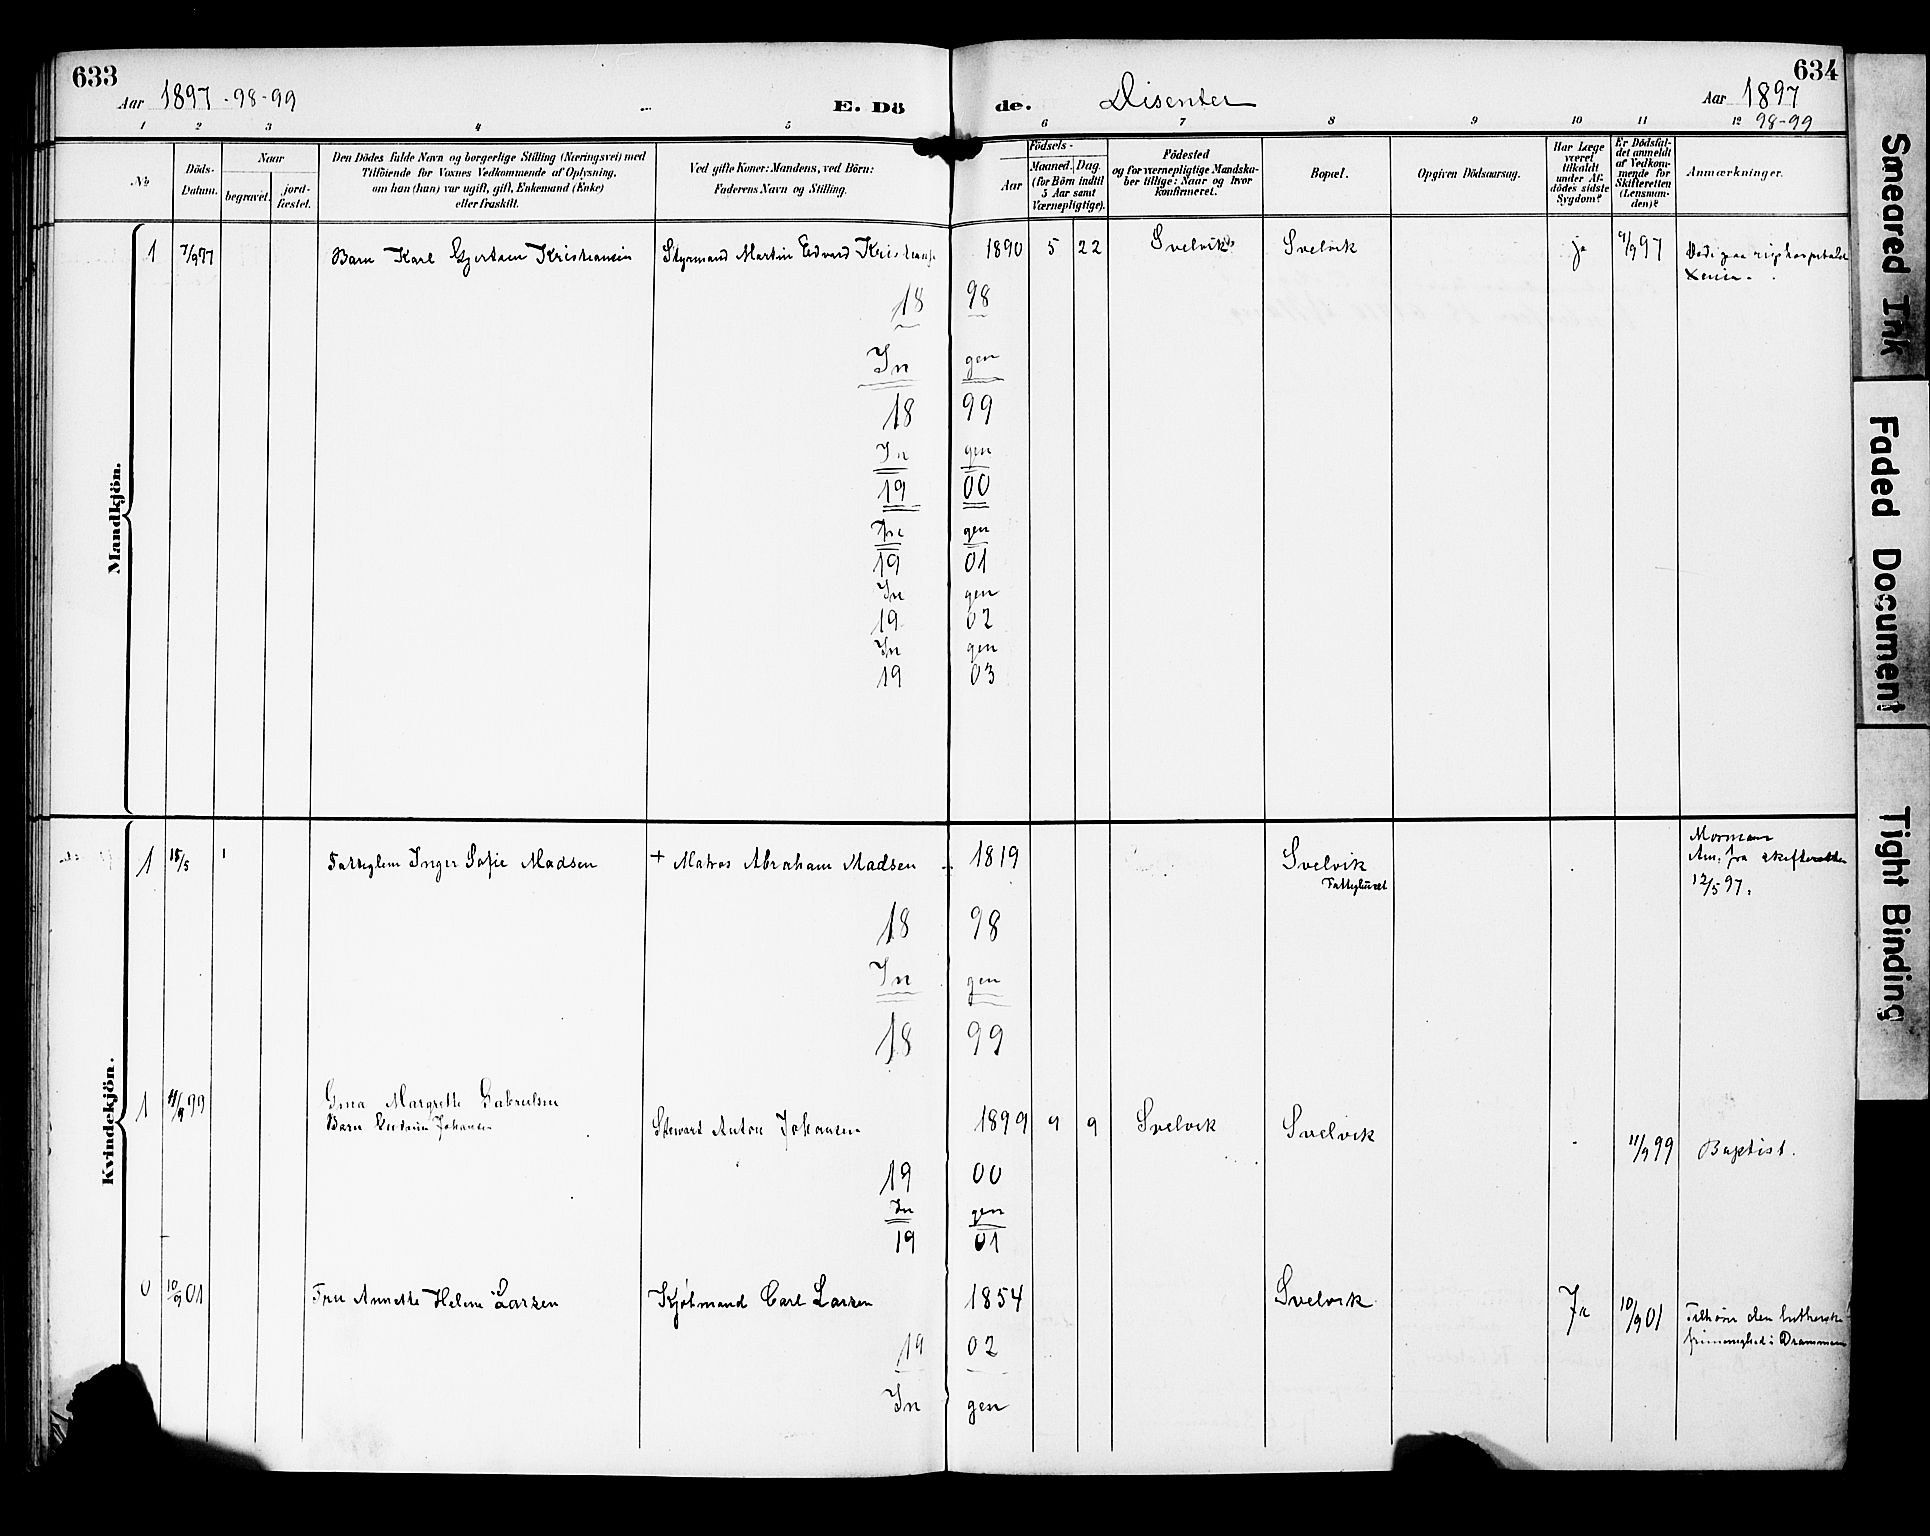 633
Aar 1897-98-99
E. Döde.
Disenter
634
Aar 1897
98-99
1 2 3 4 5 6 7 8 9 10 11 12
No.
Döds-
Datum.
Naar
begravet.
jord-
fæstet.
Den Dödes fulde Navn og borgerlige Stilling (Næringsvei) med
Tilföiende for Voxnes Vedkommende af Oplysning,
om han (hun) var ugift, gift, Enkemand (Enke)
eller fraskilt.
Ved gifte Koner: Mandens, ved Börn:
Faderens Navn og Stilling.
Födsels-
Aar
Maaned. Dag.
(for Börn indtil
5 Aar samt
Værnepligtige).
Födested
og for værnepligtige Mandska-
ber tillige: Naar og hvor
konfirmeret.
Bopæl.
Opgiven Dödsaarsag.
Har Læge
været
tilkaldt
under Af-
dödes sidste
Sygdom?
Er Dödsfal-
det anmeldt
af Vedkom-
mende for
Skifteretten
(Lensman-
den)?
Anmærkninger.
Mandkjön.
1 7/9 97 Barn Karl Gjertsen Kristiansen Styrmand Martin Edvard Kristians. 1890 5 22 Svelvik Svelvik ja 9/9 97
18 98
Ingen
18 99
Ingen
19 00
Ingen
19 01
Ingen
19 02
Ingen
19 03
Kvindekjön.
1 15/5 Fattiglem Inger Sofie Madsen + Matros Abraham Madsen 1819 Svelvik
Fattighuset
Mormon
Am. fra skifteretten
12/5 97.
18 98
Ingen
18 99
1 11/9 99 Gina Margrethe Gabrielsen
Barn Johansen Stewart Anton Johansen 1899 9 9 Svelvik Svelvik 11/9 99 Baptist.
19 00
Ingen
19 01
0 10/9 01 Fru Annette Helene Larsen Kjøbmand Carl Larsen 1854 Svelvik Ja 10/9 01 Tilhører den lutherske
frimenighed i Drammen
19 02
Ingen
Smeared Ink
Faded Document
Tight Binding